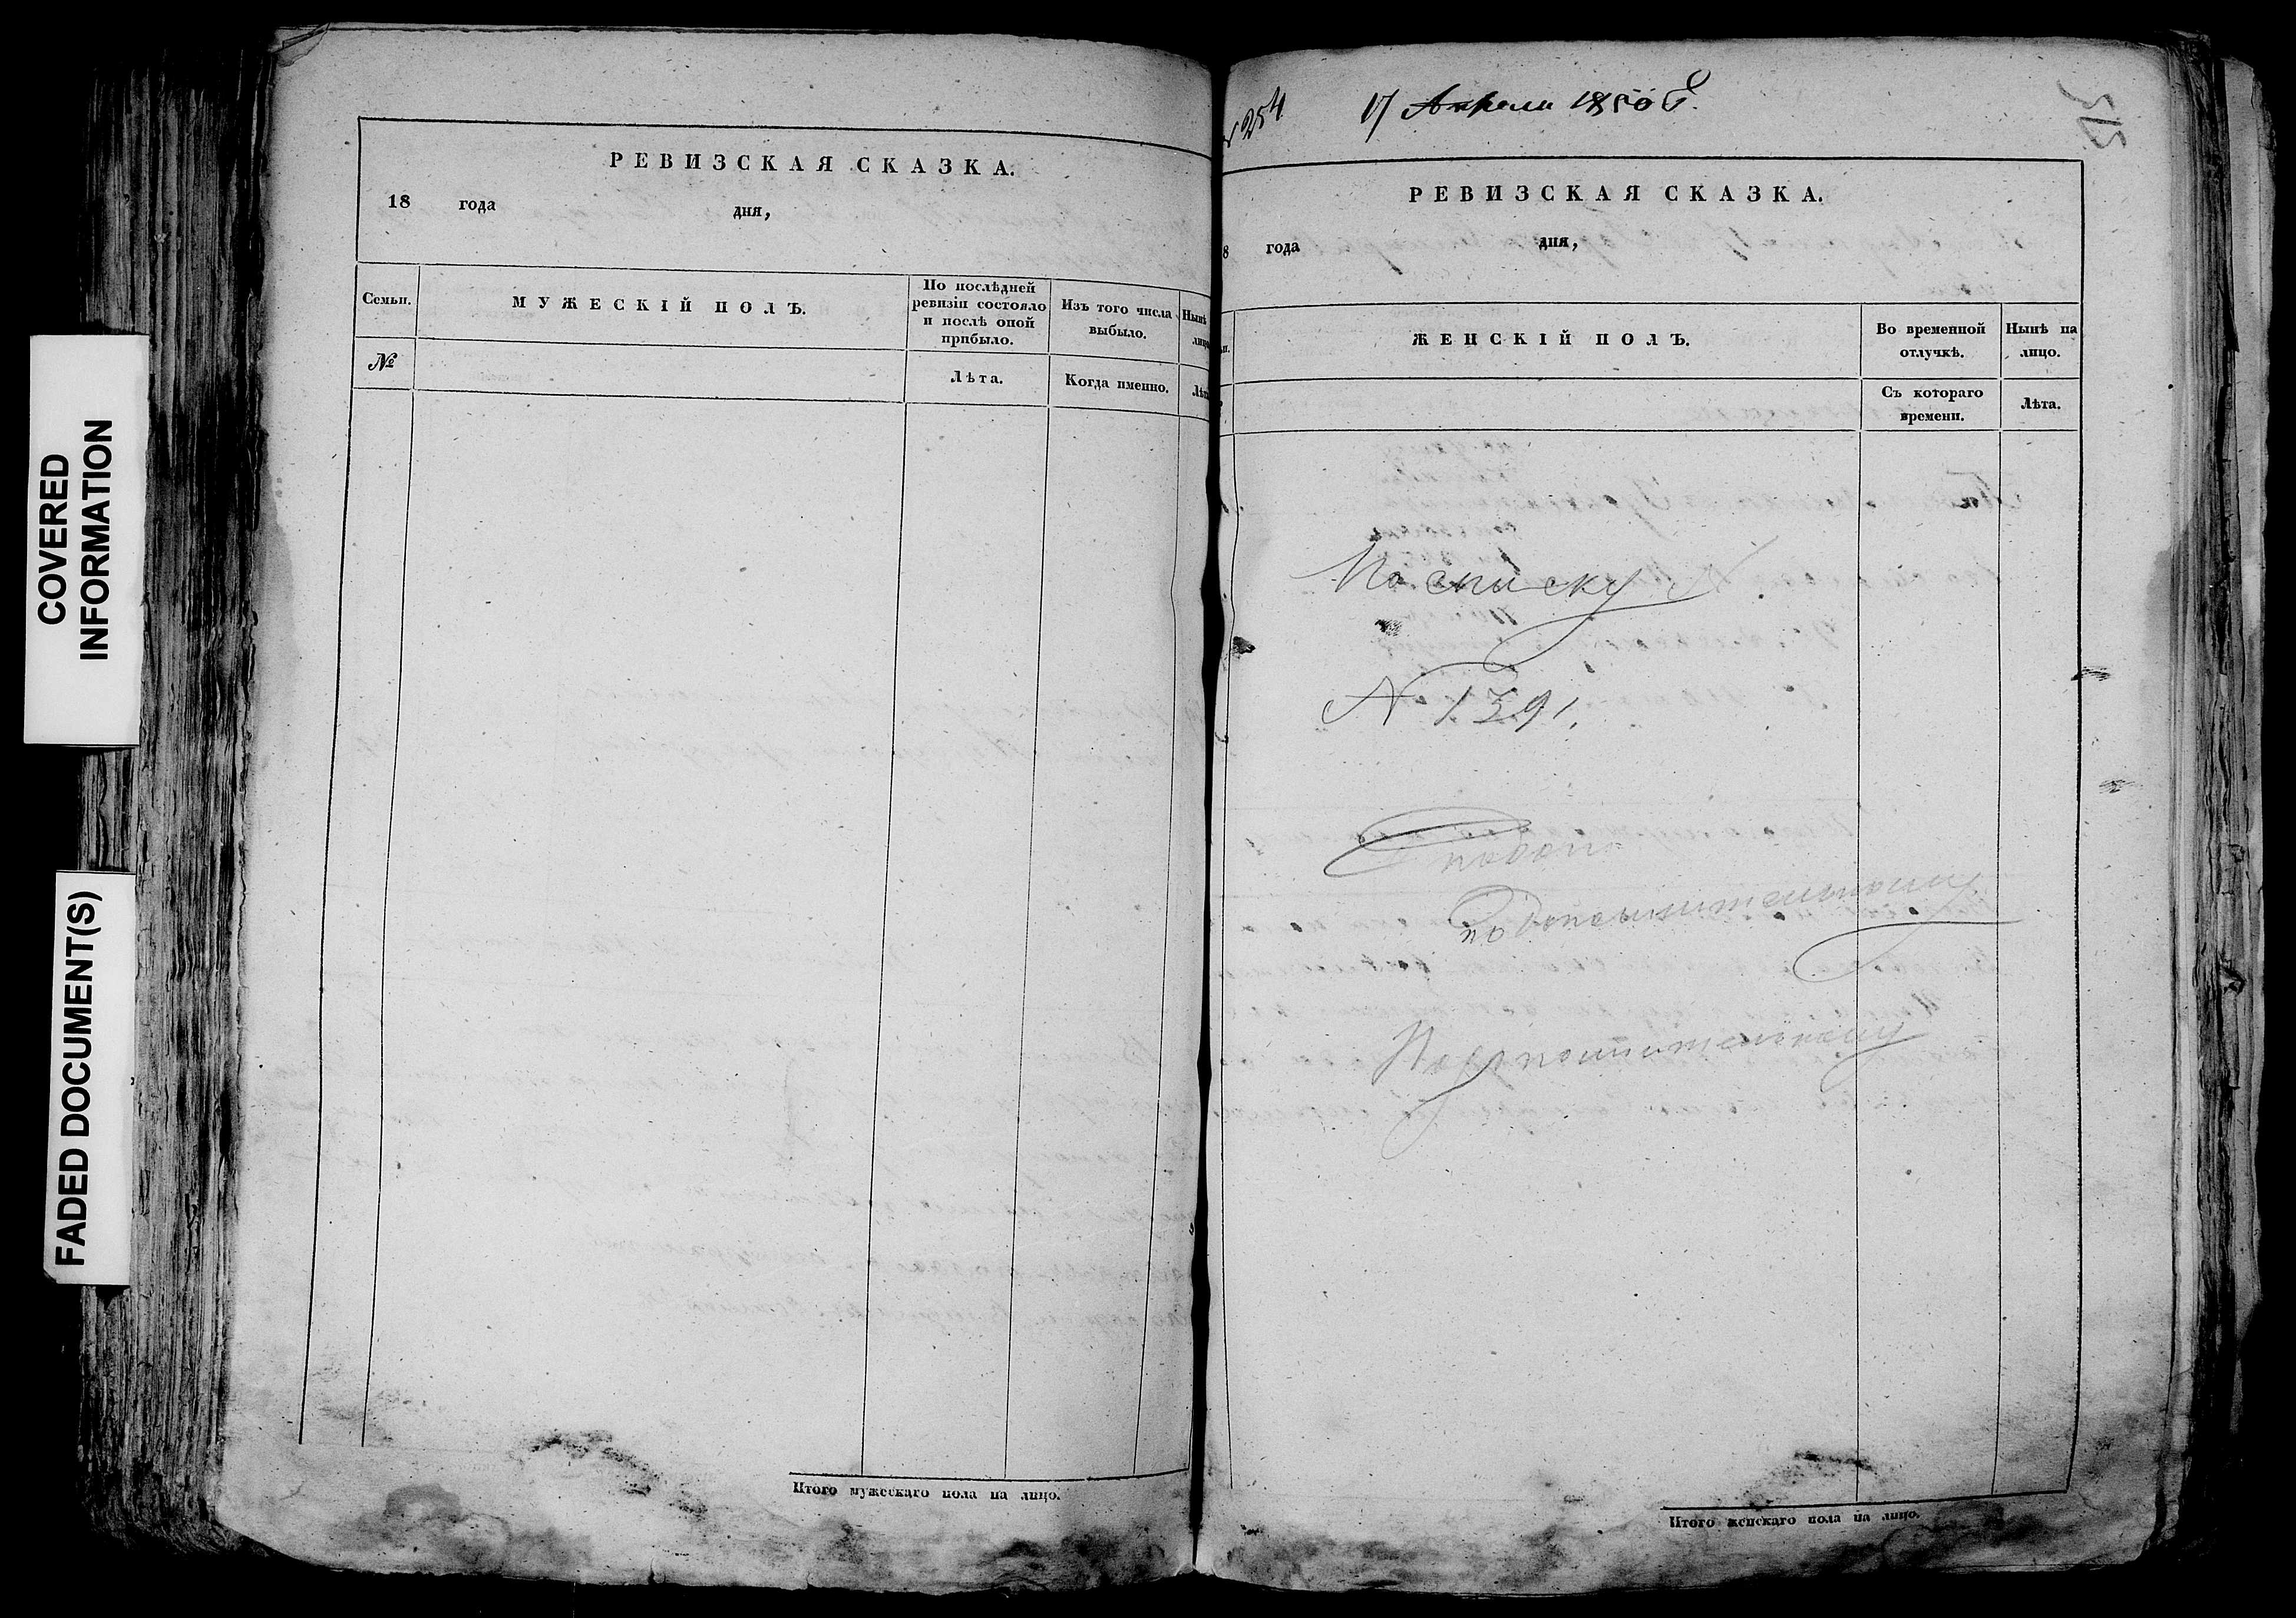 COVERED
INFORMATION
FADED DOCUMENT(S)
РЕВИЗСКАЯ СКАЗКА.
18 года дня,
Семьи. МУЖЕСКІЙ ПОЛЪ. По послѣдней ревизіи состояло и послѣ оной прибыло. Изъ того числа выбыло. Нынѣ лицо
№ Лѣта. Когда именно. Лѣта
Итого мужескаго пола на лицо.
254 17 Апреля 1850 Г.
РЕВИЗСКАЯ СКАЗКА.
8 года дня,
ЖЕНСКІЙ ПОЛЪ. Во временной отлучкѣ. Нынѣ на лицо.
Съ котораго времени. Лѣта.
По списку
N 1391.
Итого женскаго пола на лицо.